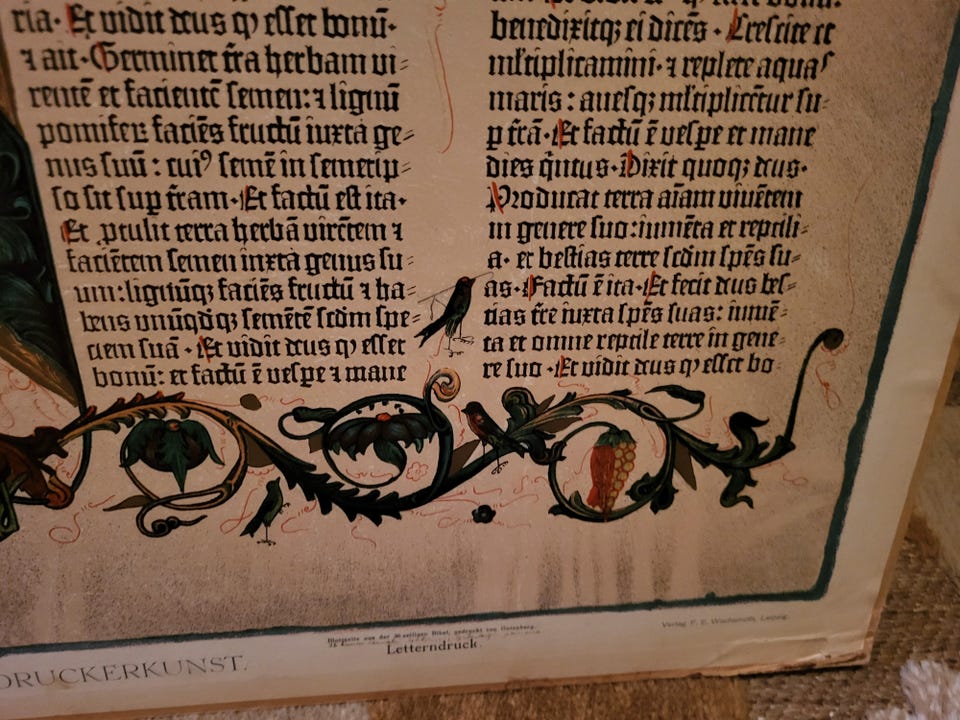 ria. Et vidit deus ꝙ esset bonū·
⁊ ait· Germinet t̄ra herbam vi-
rentē et facientē semen: ⁊ lignū
pomiferū faciēs fructū iuxta ge-
nus suū : cuiꝰ semē in semetip-
so sit suꝑ t̄ram · Et factū est ita·
Et ꝓtulit terra herbā virētem ⁊
facientem semen iuxta genus su-
um:lignūqꝫ faciēs fructū ⁊ ha-
bens unūqdqꝫ semētē scdm spe-
ciem suā · Et vidit deus ꝙ esset
bonū: et factū ē vespe ⁊ mane
benedixitqꝫ ei dicēs · Crescite et
ml̄tiplicamini· ⁊ replete aquas
maris : auesqꝫ ml̄tiplicētur su-
ꝑ t̄rā· Et factū ē vespe et mane
dies q̄ntus· Dixit quoqꝫ deus·
Producat terra aīam viuētem
in genere suo:iumēta et reptili-
a· et bestias terre scdm spēs su-
as· Factū ē ita· Et fecit deus bes-
tias t̄re iuxta spēs suas: iumē-
ta et omne reptile terre in gene-
re suo · Et vidit deus ꝙ esset bo
DRUCKERKUNST.
aus der 36 zeiligen Bibel, gedruckt von Gutenberg.
Letterndruck.
Verlag F. E. Wachsmuth, Leipzig.